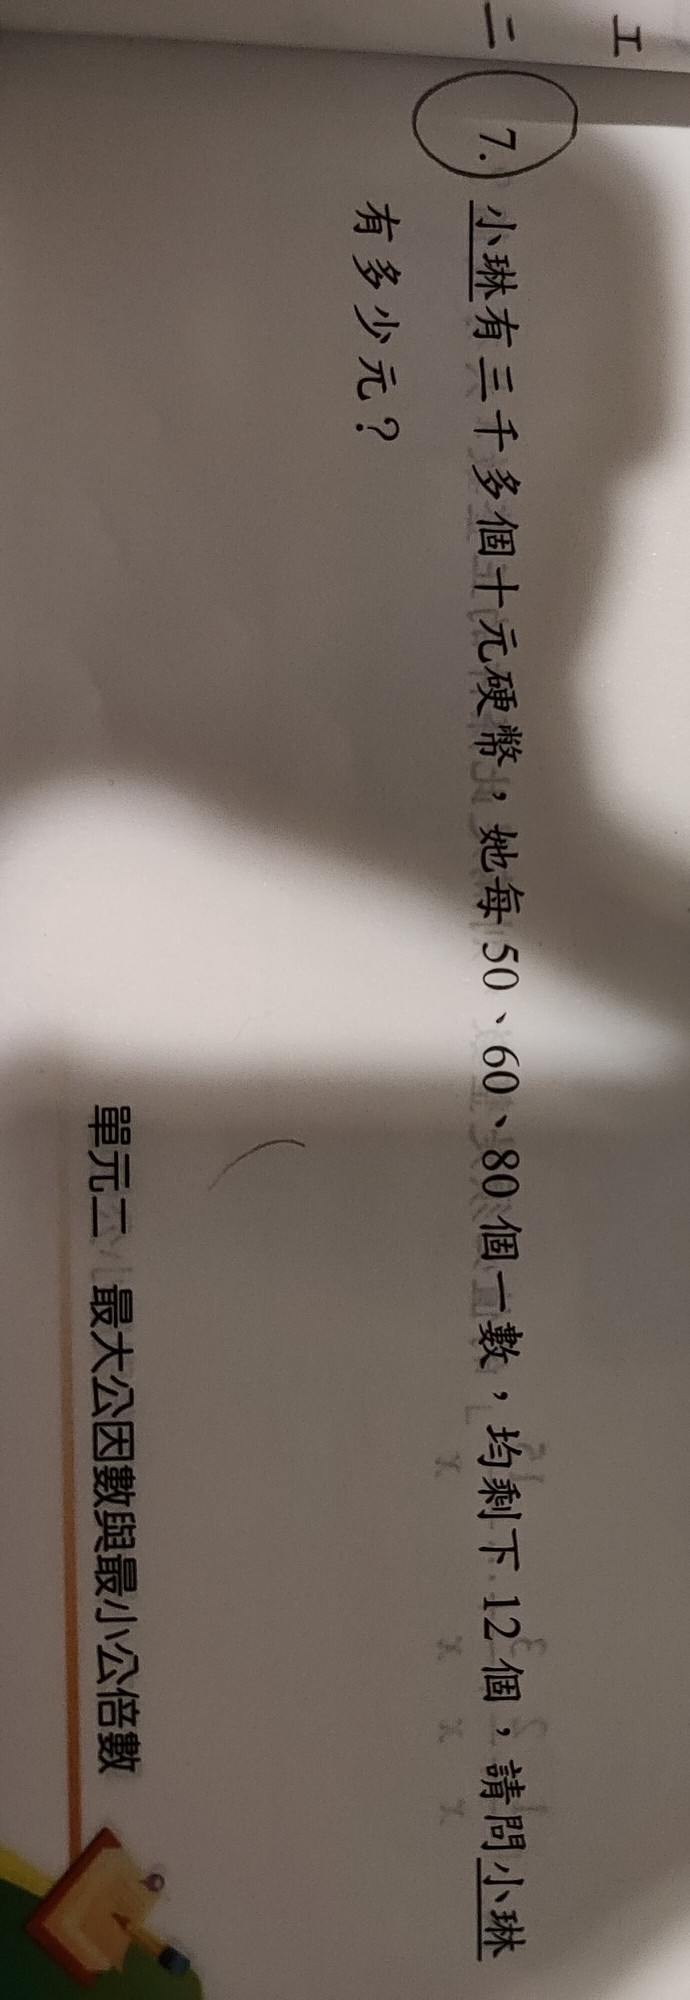 7. 小琳有三千多個十元硬幣，她每 50、60、80 個一數，均剩下 12 個，請問小琳
有多少元？
單元二 最大公因數與最小公倍數